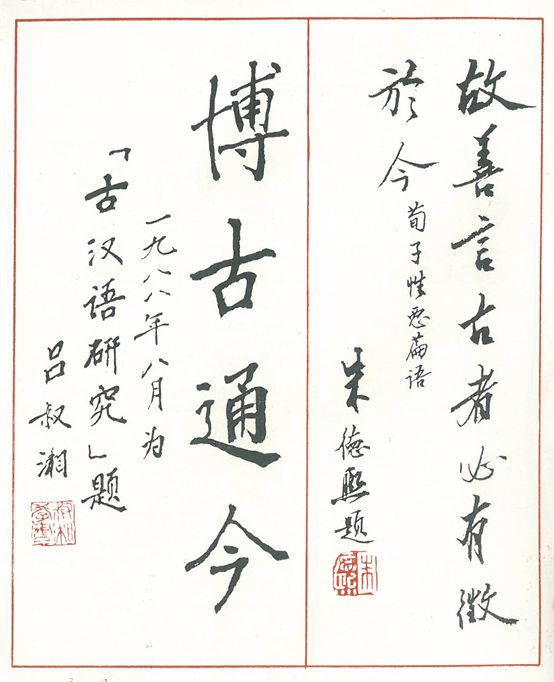 故善言古者必有徵
於今
荀子性恶篇语
朱德熙题
博古通今
一九八八年八月为
「古汉语研究」题
吕叔湘